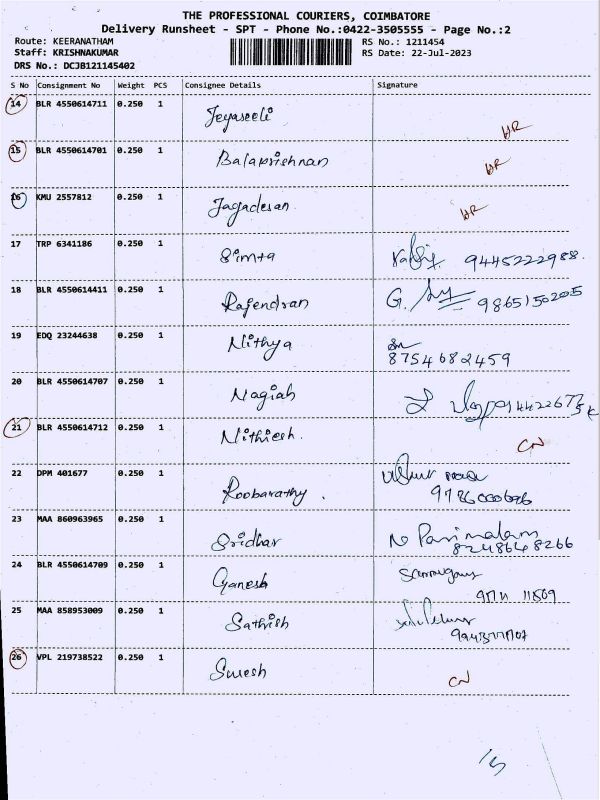 THE PROFESSIONAL COURIERS, COIMBATORE
Delivery Runsheet - SPT - Phone No.:0422-3505555 - Page No.:2
Route: KEERANATHAM RS No.: 1211454
Staff: KRISHNAKUMAR RS Date: 22-Jul-2023
DRS No.: DCJB121145402
S No Consignment No Weight PCS Consignee Details Signature
14 BLR 4550614711 0.250 1 Jeyaseeli HR
15 BLR 4550614701 0.250 1 Balaprishnan HR
16 KMU 2557812 0.250 1 Jagadesan HR
17 TRP 6341186 0.250 1 Simta 9445222988.
18 BLR 4550614411 0.250 1 Rajendran G. 9865150205
19 EDQ 23244638 0.250 1 Nithya
8754682459
20 BLR 4550614707 0.250 1 Nagiah
21 BLR 4550614712 0.250 1 Nithiesh. CN
22 DPM 401677 0.250 1 Roobarathy.
23 MAA 860963965 0.250 1 Sridhar N Parimalam
8248648266
24 BLR 4550614709 0.250 1 Ganesh
25 MAA 858953009 0.250 1 Sathish
26 VPL 219738522 0.250 1 Suresh CN